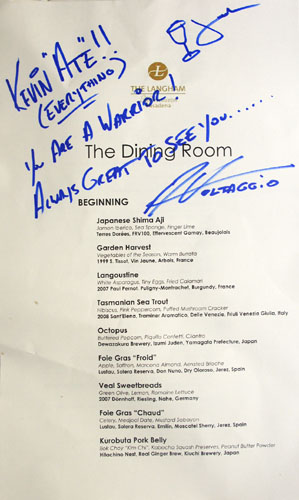 KEVIN "ATE"!!
(EVERYTHING)
YOU ARE A WARRIOR!
ALWAYS GREAT TO SEE YOU......
VOLTAGGIO
THE LANGHAM
The Dining Room
BEGINNING
Japanese Shima Aji
Jamon Iberico, Sea Sponge, Finger Lime
Terres Dorées, FRV100, Effervescent Gamay, Beaujolais
Garden Harvest
Vegetables of the Season, Warm Burrata
1999 S. Tissot, Vin Jaune, Arbois, France
Langoustine
White Asparagus, Tiny Eggs, Fried Calamari
2007 Paul Pernot, Puligny-Montrachet, Burgundy, France
Tasmanian Sea Trout
Hibiscus, Pink Peppercorn, Puffed Mushroom Cracker
2008 Sant'Elena, Traminer Aromatico, Delle Venezie, Friuli Venezia Giulia, Italy
Octopus
Buttered Popcorn, Piquillo Confetti, Cilantro
Dewazakura Brewery, Izumi Judan, Yamagata Prefecture, Japan
Foie Gras "Froid"
Apple, Saffron, Marcona Almond, Aerated Brioche
Lustau, Solera Reserva, Don Nuno, Dry Oloroso, Jerez, Spain
Veal Sweetbreads
Green Olive, Lemon, Romaine Lettuce
2007 Dönnhoff, Riesling, Nahe, Germany
Foie Gras "Chaud"
Celery, Medjool Date, Mustard Sabayon
Lustau, Solera Reserva, Emilin, Moscatel Sherry, Jerez, Spain
Kurobuta Pork Belly
Bok Choy "Kim Chi", Kabocha Squash Preserves, Peanut Butter Powder
Hitachino Nest, Real Ginger Brew, Kiuchi Brewery, Japan